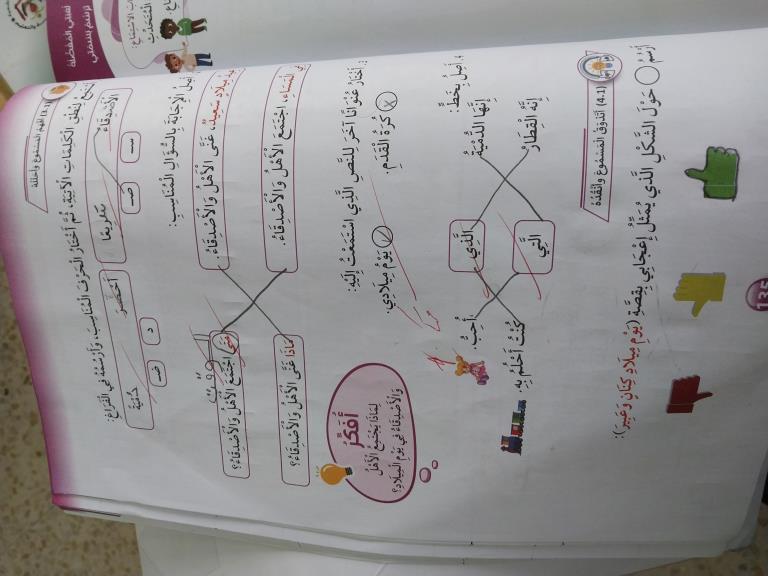 (3.1) أَفْهَمُ الْمَسْموعَ وَأُحَلِّلُهُ
الْكَلِماتِ الْآتِيَةِ، ثُمَّ أَخْتارُ الْحَرْفَ الْمُناسِبَ، وَأَرْسُمُهُ فِي الْفَراغِ:
الْأَصْدِقاءُ
تَقْريبًا
أَحْضَرَ
سـ
صـ
د
ضـ
أَصِلُ الْإِجابَةَ بِالسُّؤالِ الْمُناسِبِ:
ميلادٍ سَعيدٍ، غَنّى الْأَهْلُ وَالْأَصْدِقاءُ.
مَتى اجْتَمَعَ الْأَهْلُ وَالْأَصْدِقاءُ؟
الْمَساءِ، اجْتَمَعَ الْأَهْلُ وَالْأَصْدِقاءُ.
ماذا غَنّى الْأَهْلُ وَالْأَصْدِقاءُ؟
د. أَخْتارُ عُنْوانًا آخَرَ لِلنَّصِّ الَّذي اسْتَمَعْتُ إِلَيْهِ:
كُرَةُ الْقَدَمِ.
يَوْمُ ميلادي.
أُفَكِّرُ
لِماذا يَجْتَمِعُ الْأَهْلُ
وَالْأَصْدِقاءُ في يَوْمِ الْميلادِ؟
هـ. أَصِلُ بِخَطٍّ:
إِنَّها الدُّمْيَةُ
الَّذي
أُحِبُّ.
إِنَّهُ الْقِطارُ
الَّتي
كُنْتُ أَحْلُمُ بِهِ.
(4.1) أَتَذَوَّقُ الْمَسْموعَ وَأَنْقُدُهُ
أَرْسُمُ ○ حَوْلَ الشَّكْلِ الَّذي يُمَثِّلُ إِعْجابي بِقِصَّةِ (يَوْمِ ميلادِ كِنانٍ وَعَبيرَ):
135